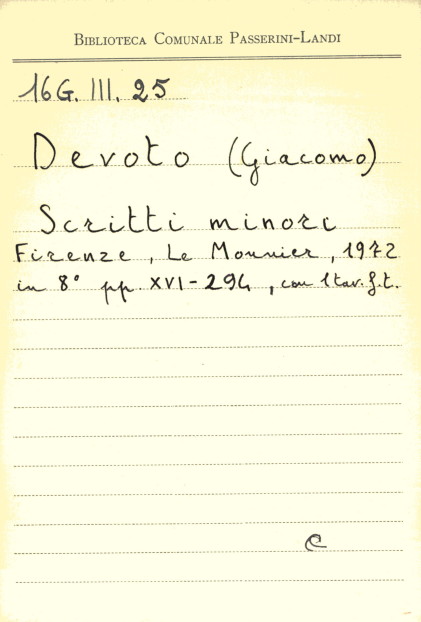 BIBLIOTECA COMUNALE PASSERINI-LANDI
16G. III. 25
Devoto (Giacomo)
Scritti minori
Firenze, Le Monnier, 1972
in 8° pp. XVI-294, con 1 tav. f.t.
C